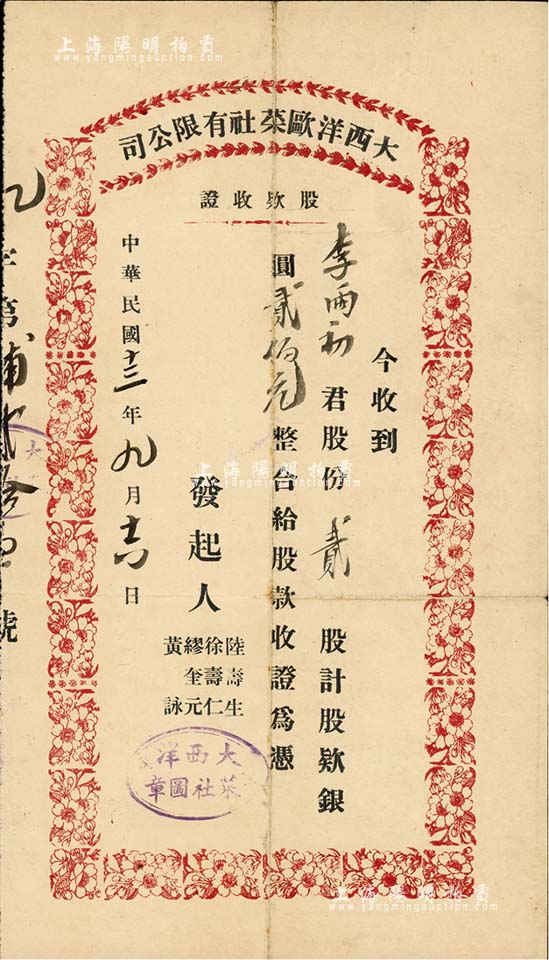 上海陽明拍賣
www.yangmingauction.com
大西洋歐菜社有限公司
股欵收證
今收到
李雨初君股份貳股計股欵銀
圓貳佰元整合給股款收證為憑
發起人
陸壽生
徐壽仁
繆奎元
黃詠
中華民國十三年九月十六日
大西洋
菜社圖章
號
上海陽明拍賣
www.yangmingauction.com
上海陽明拍賣
www.yangmingauction.com